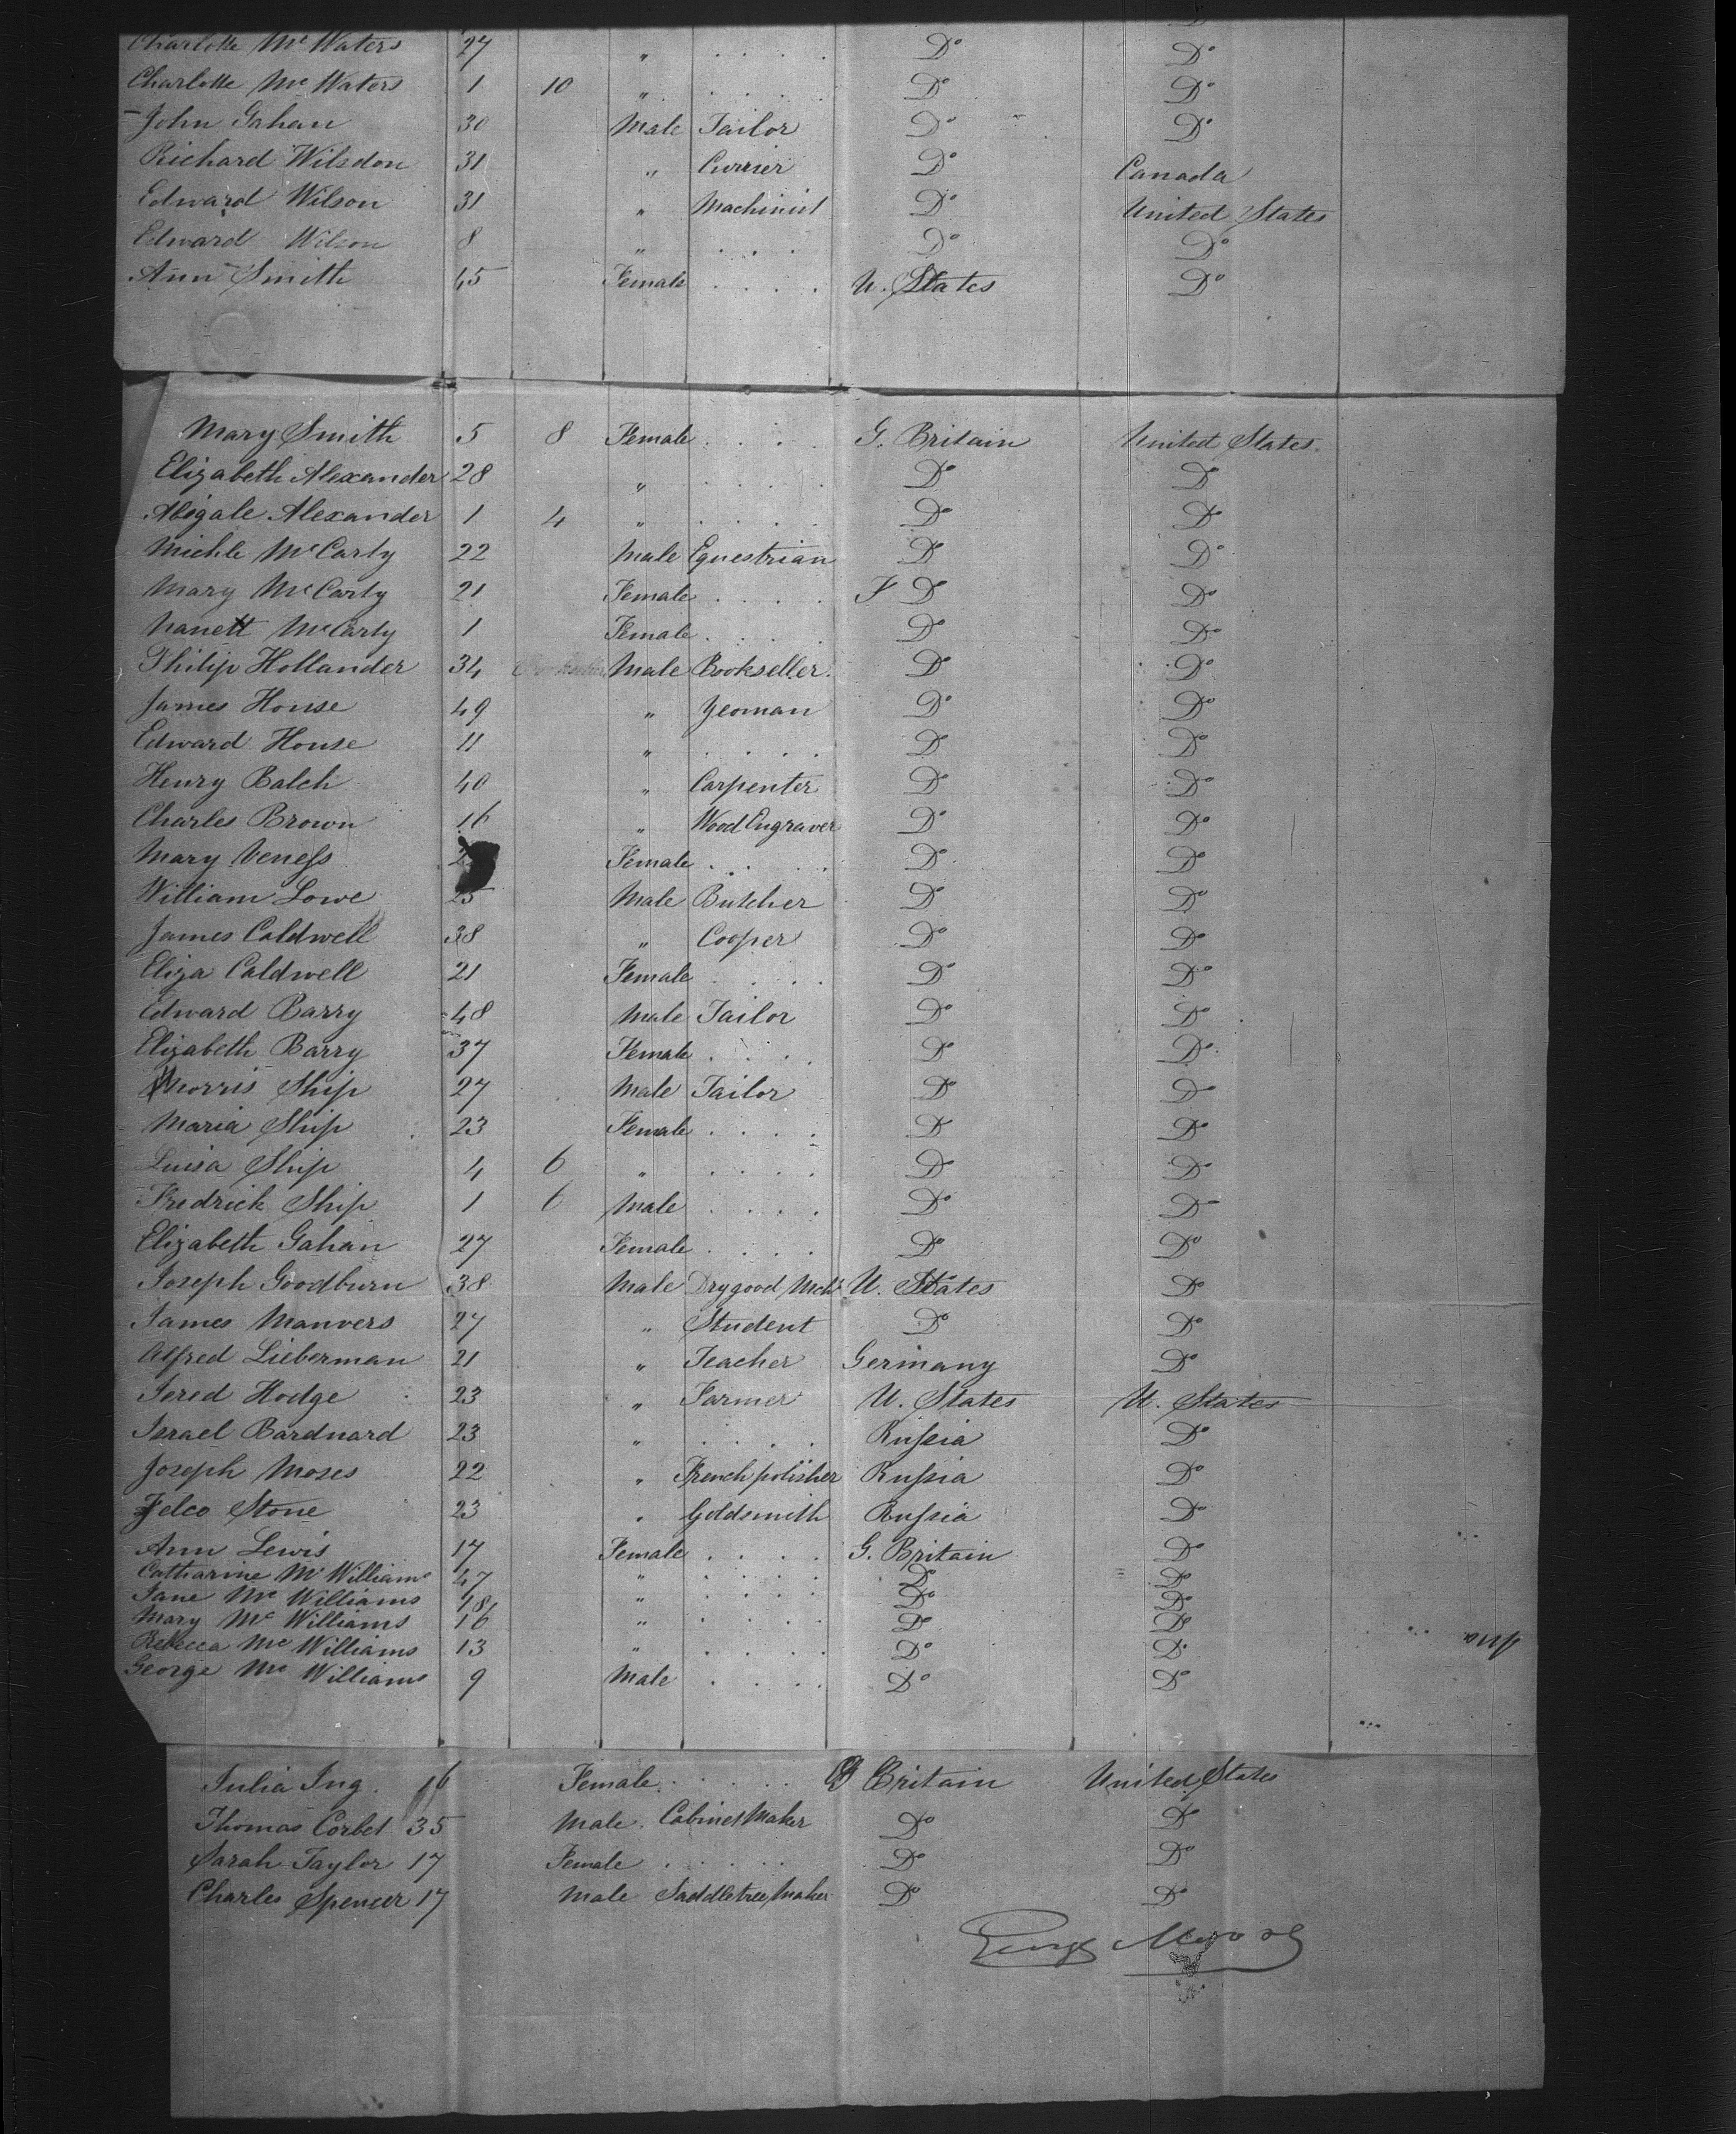 Charlotte Mc Waters 27 " . . . . Do Do
Charlotte Mc Waters 1 10 " . . . . Do Do
John Gahan 30 Male Tailor Do Do
Richard Wilsdon 31 " Currier Do Canada
Edward Wilson 31 " Machinist Do United States
Edward Wilson 8 " . . . Do Do
Ann Smith 45 Female . . . . U. States Do
Mary Smith 5 8 Female . . . . G. Britain United States
Elizabeth Alexander 28 " . . . . Do Do
Abigale Alexander 1 4 " . . . . Do Do
Michle McCarty 22 Male Equestrian Do Do
Mary McCarty 21 Female . . . . Do Do
Nanett McCarty 1 Female . . . . Do Do
Philip Hollander 34 Male Bookseller Do Do
James House 49 " Yeoman Do Do
Edward House 11 " . . . . Do Do
Henry Balch 40 " Carpenter Do Do
Charles Brown 16 " Wood Engraver Do Do
Mary Veness Female . . . . Do Do
William Lowe 25 Male Butcher Do Do
James Caldwell 38 " Cooper Do Do
Eliza Caldwell 21 Female . . . . Do Do
Edward Barry 48 Male Tailor Do Do
Elizabeth Barry 37 Female . . . . Do Do
Morris Ship 27 Male Tailor Do Do
Maria Ship 23 Female . . . . Do Do
Luisa Ship 4 6 " . . . . Do Do
Fredrick Ship 1 6 Male . . . . Do Do
Elizabeth Gahan 27 Female . . . . Do Do
Joseph Goodburn 38 Male Drygood Mcht U. States Do
James Manvers 27 " Student Do Do
Alfred Lieberman 21 " Teacher Germany Do
Jered Hodge 23 " Farmer U. States U. States
Israel Bardnard 23 " . . . . Russia Do
Joseph Moses 22 " French polisher Russia Do
Felco Stone 23 " Goldsmith Russia Do
Ann Lewis 17 Female . . . . G. Britain Do
Catharine Mc Williams 47 " . . . . Do Do
Jane Mc Williams 18 " . . . . Do Do
Mary Mc Williams 16 " . . . . Do Do
Rebecca Mc Williams 13 " . . . . Do Do
George Mc Williams 9 Male . . . . Do Do
Julia Ing 16 Female . . . . . G Britain United States
Thomas Corbet 35 Male Cabinet Maker Do Do
Sarah Taylor 17 Female . . . . . Do Do
Charles Spencer 17 Male Saddletree Maker Do Do